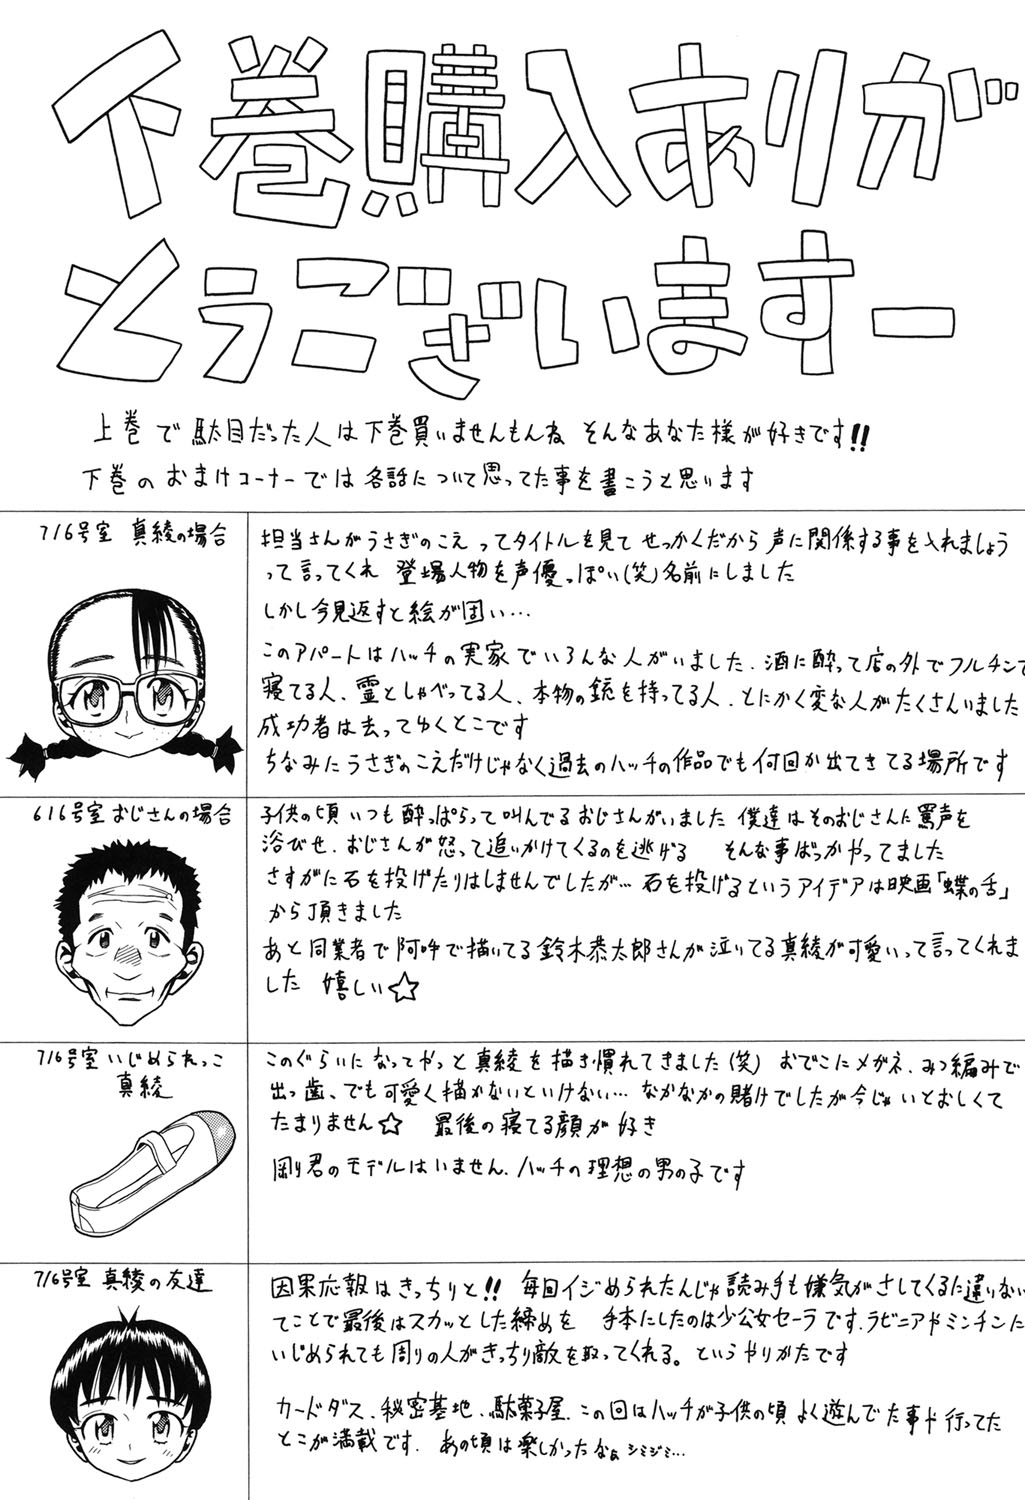 下巻購入ありが
とうございますー
上巻で駄目だった人は下巻買いませんもんね そんなあなた様が好きです!!
下巻のおまけコーナーでは各話について思ってた事を書こうと思います
716号室 真綾の場合
担当さんがうさぎのこえ ってタイトルを見て せっかくだから声に関係する事を入れましょう
って言ってくれ 登場人物を声優っぽい(笑)名前にしました
しかし今見返すと絵が固い…
このアパートはハッチの実家でいろんな人がいました、酒に酔って店の外でフルチンで
寝てる人、霊としゃべってる人、本物の銃を持ってる人、とにかく変な人がたくさんいました
成功者は去ってゆくとこです
ちなみにうさぎのこえだけじゃなく過去のハッチの作品でも何回か出てきてる場所です
616号室 おじさんの場合
子供の頃いつも酔っぱらって叫んでるおじさんがいました 僕達はそのおじさんに罵声を
浴びせ、おじさんが怒って追いかけてくるのを逃げる そんな事ばっかやってました
さすがに石を投げたりはしませんでしたが… 石を投げるというアイデアは映画「蝶の舌」
から頂きました
あと同業者で阿吽で描いてる鈴木恭太郎さんが泣いてる真綾が可愛いって言ってくれま
した 嬉しい☆
716号室 いじめられっこ
真綾
このぐらいになってやっと真綾を描き慣れてきました(笑) おでこにメガネ、みつ編みで
出っ歯、でも可愛く描かないといけない… なかなかの賭けでしたが今じゃいとおしくて
たまりません☆ 最後の寝てる顔が好き
剛り君のモデルはいません、ハッチの理想の男の子です
716号室 真綾の友達
因果応報はきっちりと!! 毎回イジめられたんじゃ読み手も嫌気がさしてくるに違いない
てことで最後はスカッとした締めを 手本にしたのは少公女セーラです、ラビニアやミンチンに
いじめられても周りの人がきっちり敵を取ってくれる。というやりかたです
カードダス、秘密基地、駄菓子屋、この回はハッチが子供の頃よく遊んでた事や行ってた
とこが満載です、あの頃は楽しかったなぁ シミジミ…